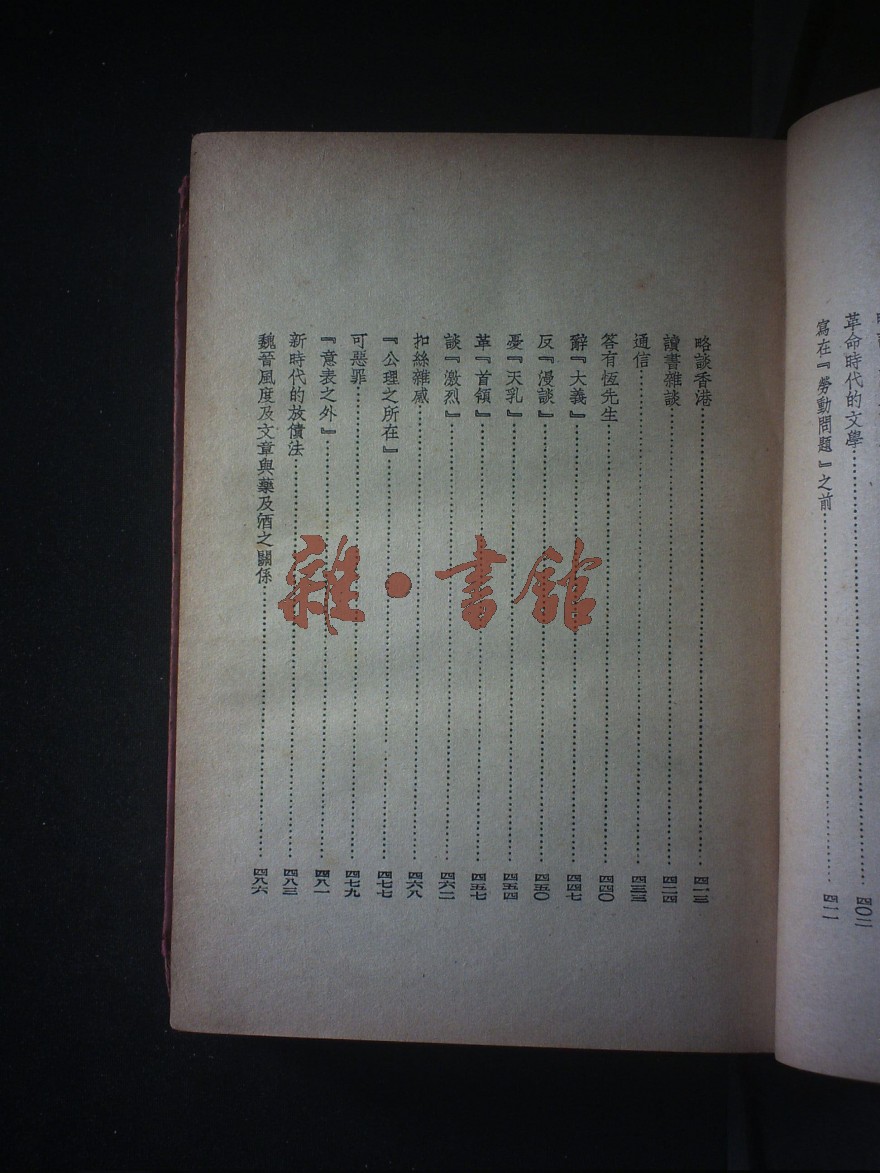 革命時代的文學……四〇二
寫在『勞動問題』之前……四一一
略談香港……四一三
讀書雜談……四二四
通信……四三三
答有恆先生……四四〇
辭『大義』……四四七
反『漫談』……四五〇
憂『天乳』……四五四
革『首領』……四五七
談『激烈』……四六二
扣絲雜感……四六八
『公理之所在』……四七七
可惡罪……四七九
『意表之外』……四八一
新時代的放債法……四八三
魏晉風度及文章與藥及酒之關係……四八六
雜·書館